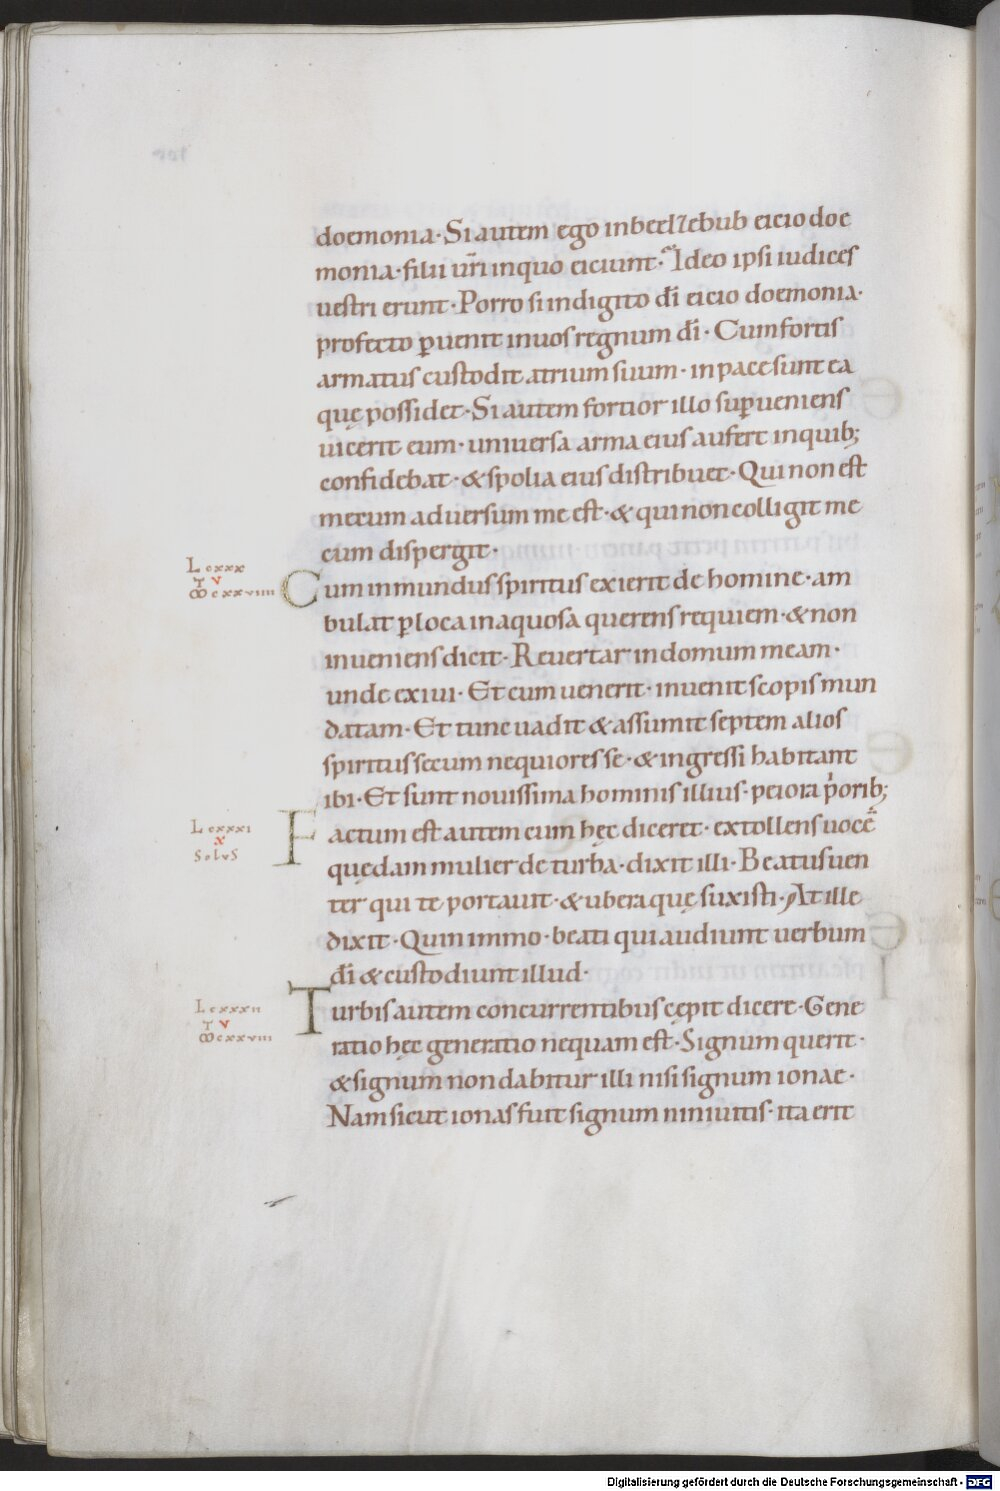 doemonia· Si autem ego in beelzebub eicio doe
monia· filii ur̄i in quo eiciunt? Ideo ipsi iudices
uestri erunt· Porro si in digito dī eicio doemonia·
profecto ꝑuenit in uos regnum dī· Cum fortis
armatus custodit atrium suum· in pace sunt ea
quę possidet· Si autem fortior illo suꝑueniens
uicerit eum· universa arma eius aufert in quib;
confidebat· & spolia eius distribuet· Qui non est
mecum aduersum me est· & qui non colligit me
cum dispergit·
L cxxx
T V
M cxxviiii
Cum inmundus spiritus exierit de homine· am
bulat ꝑ loca inaquosa querens requiem· & non
inueniens dicit· Reuertar in domum meam·
unde exiui· Et cum uenerit· inuenit scopis mun
datam· Et tunc uadit & assumit septem alios
spiritus secum nequiores se· & ingressi habitant
ibi· Et sunt nouissima hominis illius· peiora p̍orib;
L cxxxi
X
SolvS
Factum est autem cum hęc diceret· extollens uocē
quędam mulier de turba· dixit illi· Beatus uen
ter qui te portauit· & ubera quę suxisti· At ille
dixit· Quin immo· beati qui audiunt uerbum
dī & custodiunt illud·
L cxxxii
T V
M cxxviii
Turbis autem concurrentibus cępit dicere· Gene
ratio hęc generatio nequam est· Signum querit·
& signum non dabitur illi nisi signum ionae·
Nam sicut ionas fuit signum niniuitis· ita erit
Digitalisierung gefördert durch die Deutsche Forschungsgemeinschaft - DFG